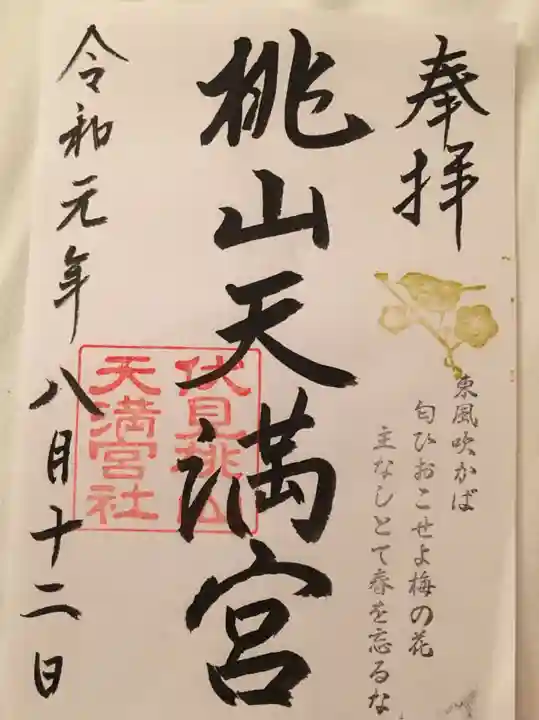 奉拝
東風吹かば
匂ひおこせよ梅の花
主なしとて春を忘るな
桃山天満宮
伏見桃山
天満宮社
令和元年八月十二日